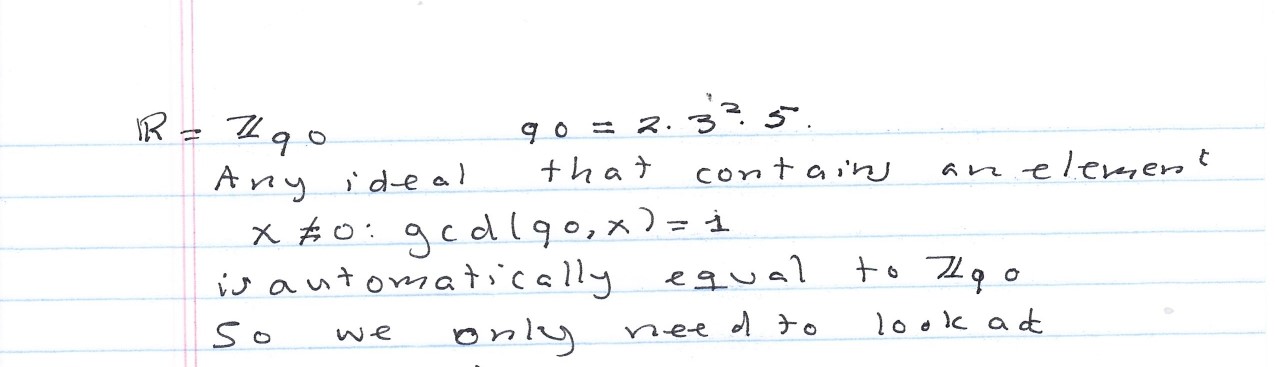 ℝ = ℤ90 90 = 2·3²·5.
Any ideal that contains an element
x ≠ 0: gcd(90, x) = 1
is automatically equal to ℤ90
So we only need to look at